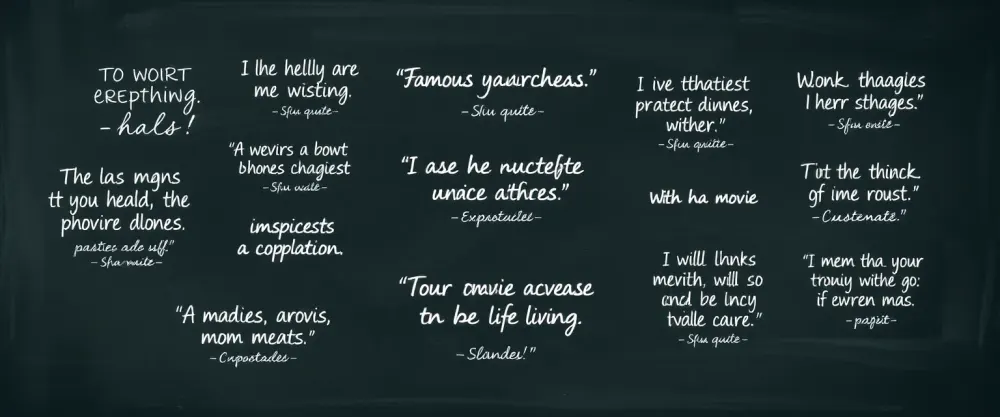 TO WOIRT
EREPTHING.
- hals!
The las mgns
tt you heald, the
phovire dlones.
pastiec ado uff."
I lhe hellly are
me wisting.
- Sfuu quite -
"A wevirs a bowt
bhones chagiest
- Sfuu
imspicests
a copplation.
"A madies, arovis,
mom meats."
- Cnpostades -
"Famous yaurcheas."
- Slu quite -
"I ase he nuctefte
unice athces."
- Exprotucles -
"Tour cmavie acvease
tn be life living.
- Slandes!"
I ive tthatiest
pratect dinnes,
wither."
- Sfuu quitie -
With ha movie
I willl lhnks
mevith, will so
and be lncy
tvalle caure."
- Sfuu quite -
Wonk thaagles
I herr sthages."
- Sfuu
Tirt the thinck
gf ime roust."
- Custenate."
"I mem tha your
trouiy withe go:
if ewren mas.
- papiit -